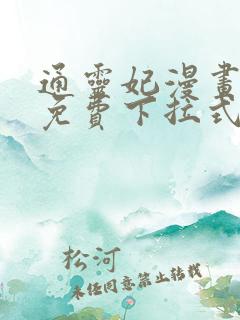 通靈妃漫畫
免費下拉式
松河
未經同意禁止轉載